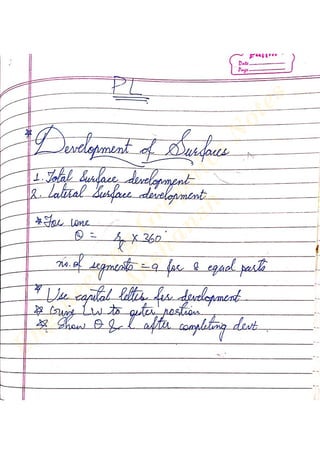 Date
Page
PL
* Development of Surfaces
1. Total Surface development
2. Lateral Surface development
* For cone
θ = r/l × 360°
no. of segments = 9 for 8 equal parts
* Use capital letter for development
* Give LW to outer position
* Show θ & l after completing devt.
Notes